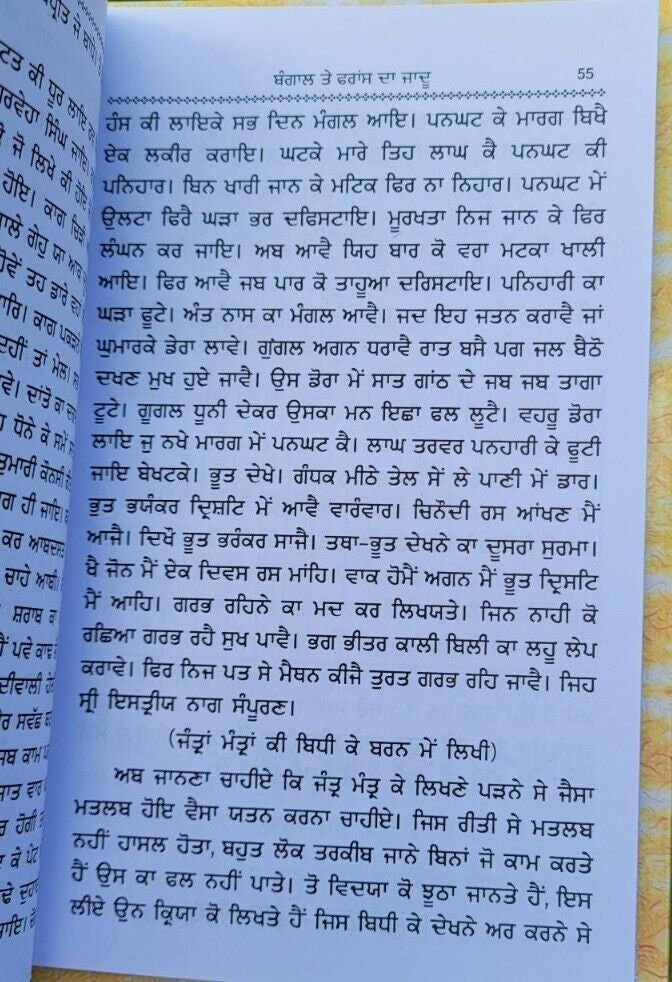 ਬੰਗਾਲ ਤੇ ਫਰਾਂਸ ਦਾ ਜਾਦੂ 55
ਹੰਸ ਕੀ ਲਾਇਕੇ ਸਭ ਦਿਨ ਮੰਗਲ ਆਇ। ਪਨਘਟ ਕੇ ਮਾਰਗ ਬਿਖੈ
ਏਕ ਲਕੀਰ ਕਰਾਇ। ਘਟਕੇ ਮਾਰੇ ਤਿਹ ਲਾਘ ਕੈ ਪਨਘਟ ਕੀ
ਪਨਿਹਾਰ। ਬਿਨ ਖਾਰੀ ਜਾਨ ਕੇ ਮਟਿਕ ਫਿਰ ਨਾ ਨਿਹਾਰ। ਪਨਘਟ ਮੇਂ
ਉਲਟਾ ਫਿਰੈ ਘੜਾ ਭਰ ਦਫਿਸਟਾਇ। ਮੂਰਖਤਾ ਨਿਜ ਜਾਨ ਕੇ ਫਿਰ
ਲੰਘਨ ਕਰ ਜਾਇ। ਅਬ ਆਵੈ ਯਿਹ ਬਾਰ ਕੋ ਵਰਾ ਮਟਕਾ ਖਾਲੀ
ਆਇ। ਫਿਰ ਆਵੈ ਜਬ ਪਾਰ ਕੋ ਤਾਹੂਆ ਦਰਿਸਟਾਇ। ਪਨਿਹਾਰੀ ਕਾ
ਘੜਾ ਫੂਟੇ। ਅੰਤ ਨਾਸ ਕਾ ਮੰਗਲ ਆਵੈ। ਜਦ ਇਹ ਜਤਨ ਕਰਾਵੈ ਜਾਂ
ਘੁਮਾਰਕੇ ਡੇਰਾ ਲਾਵੇ। ਗੁੰਗਲ ਅਗਨ ਧਰਾਵੈ ਰਾਤ ਬਸੈ ਪਗ ਜਲ ਬੈਠੋ
ਦਖਣ ਮੁਖ ਹੁਏ ਜਾਵੈ। ਉਸ ਡੋਰਾ ਮੇਂ ਸਾਤ ਗਾਂਠ ਦੇ ਜਬ ਜਬ ਤਾਗਾ
ਟੂਟੇ। ਗੂਗਲ ਧੂਨੀ ਦੇਕਰ ਉਸਕਾ ਮਨ ਇਛਾ ਫਲ ਲੂਟੈ। ਵਹਰੂ ਡੋਰਾ
ਲਾਇ ਜੁ ਨਖੇ ਮਾਰਗ ਮੇਂ ਪਨਘਟ ਕੈ। ਲਾਘ ਤਰਵਰ ਪਨਹਾਰੀ ਕੇ ਫੂਟੀ
ਜਾਇ ਬੇਖਟਕੇ। ਭੂਤ ਦੇਖੇ। ਗੰਧਕ ਮੀਠੇ ਤੇਲ ਸੇਂ ਲੇ ਪਾਣੀ ਮੇਂ ਡਾਰ।
ਭੂਤ ਭਯੰਕਰ ਦ੍ਰਿਸ਼ਟਿ ਮੇਂ ਆਵੈ ਵਾਰੰਵਾਰ। ਚਿਨੌਦੀ ਰਸ ਆਂਖਣ ਮੈਂ
ਆਜੈ। ਦਿਖੌ ਭੂਤ ਭਰੰਕਰ ਸਾਜੈ। ਤਥਾ-ਭੂਤ ਦੇਖਨੇ ਕਾ ਦੂਸਰਾ ਸੁਰਮਾ।
ਖੈ ਜੋਨ ਮੈਂ ਏਕ ਦਿਵਸ ਰਸ ਮਾਂਹਿ। ਵਾਕ ਹੋਮੈਂ ਅਗਨ ਮੈਂ ਭੂਤ ਦ੍ਰਿਸਟਿ
ਮੈਂ ਆਹਿ। ਗਰਭ ਰਹਿਨੇ ਕਾ ਮਦ ਕਰ ਲਿਖਯਤੇ। ਜਿਨ ਨਾਹੀ ਕੋ
ਰਛਿਆ ਗਰਭ ਰਹੈ ਸੁਖ ਪਾਵੈ। ਭਗ ਭੀਤਰ ਕਾਲੀ ਬਿਲੀ ਕਾ ਲਹੂ ਲੇਪ
ਕਰਾਵੇ। ਫਿਰ ਨਿਜ ਪਤ ਸੇ ਮੈਥਨ ਕੀਜੈ ਤੁਰਤ ਗਰਭ ਰਹਿ ਜਾਵੈ। ਜਿਹ
ਸ੍ਰੀ ਇਸਤ੍ਰੀਯ ਨਾਗ ਸੰਪੂਰਣ।
(ਜੰਤ੍ਰਾਂ ਮੰਤ੍ਰਾਂ ਕੀ ਬਿਧੀ ਕੇ ਬਰਨ ਮੇਂ ਲਿਖੀ)
ਅਬ ਜਾਨਣਾ ਚਾਹੀਏ ਕਿ ਜੰਤ੍ਰ ਮੰਤ੍ਰ ਕੇ ਲਿਖਣੇ ਪੜਨੇ ਸੇ ਜੈਸਾ
ਮਤਲਬ ਹੋਇ ਵੈਸਾ ਯਤਨ ਕਰਨਾ ਚਾਹੀਏ। ਜਿਸ ਰੀਤੀ ਸੇ ਮਤਲਬ
ਨਹੀਂ ਹਾਸਲ ਹੋਤਾ, ਬਹੁਤ ਲੋਕ ਤਰਕੀਬ ਜਾਨੇ ਬਿਨਾਂ ਜੋ ਕਾਮ ਕਰਤੇ
ਹੈਂ ਉਸ ਕਾ ਫਲ ਨਹੀਂ ਪਾਤੇ। ਤੋ ਵਿਦਯਾ ਕੋ ਝੂਠਾ ਜਾਨਤੇ ਹੈਂ, ਇਸ
ਲੀਏ ਉਨ ਕ੍ਰਿਯਾ ਕੋ ਲਿਖਤੇ ਹੈਂ ਜਿਸ ਬਿਧੀ ਕੇ ਦੇਖਨੇ ਅਰ ਕਰਨੇ ਸੇ